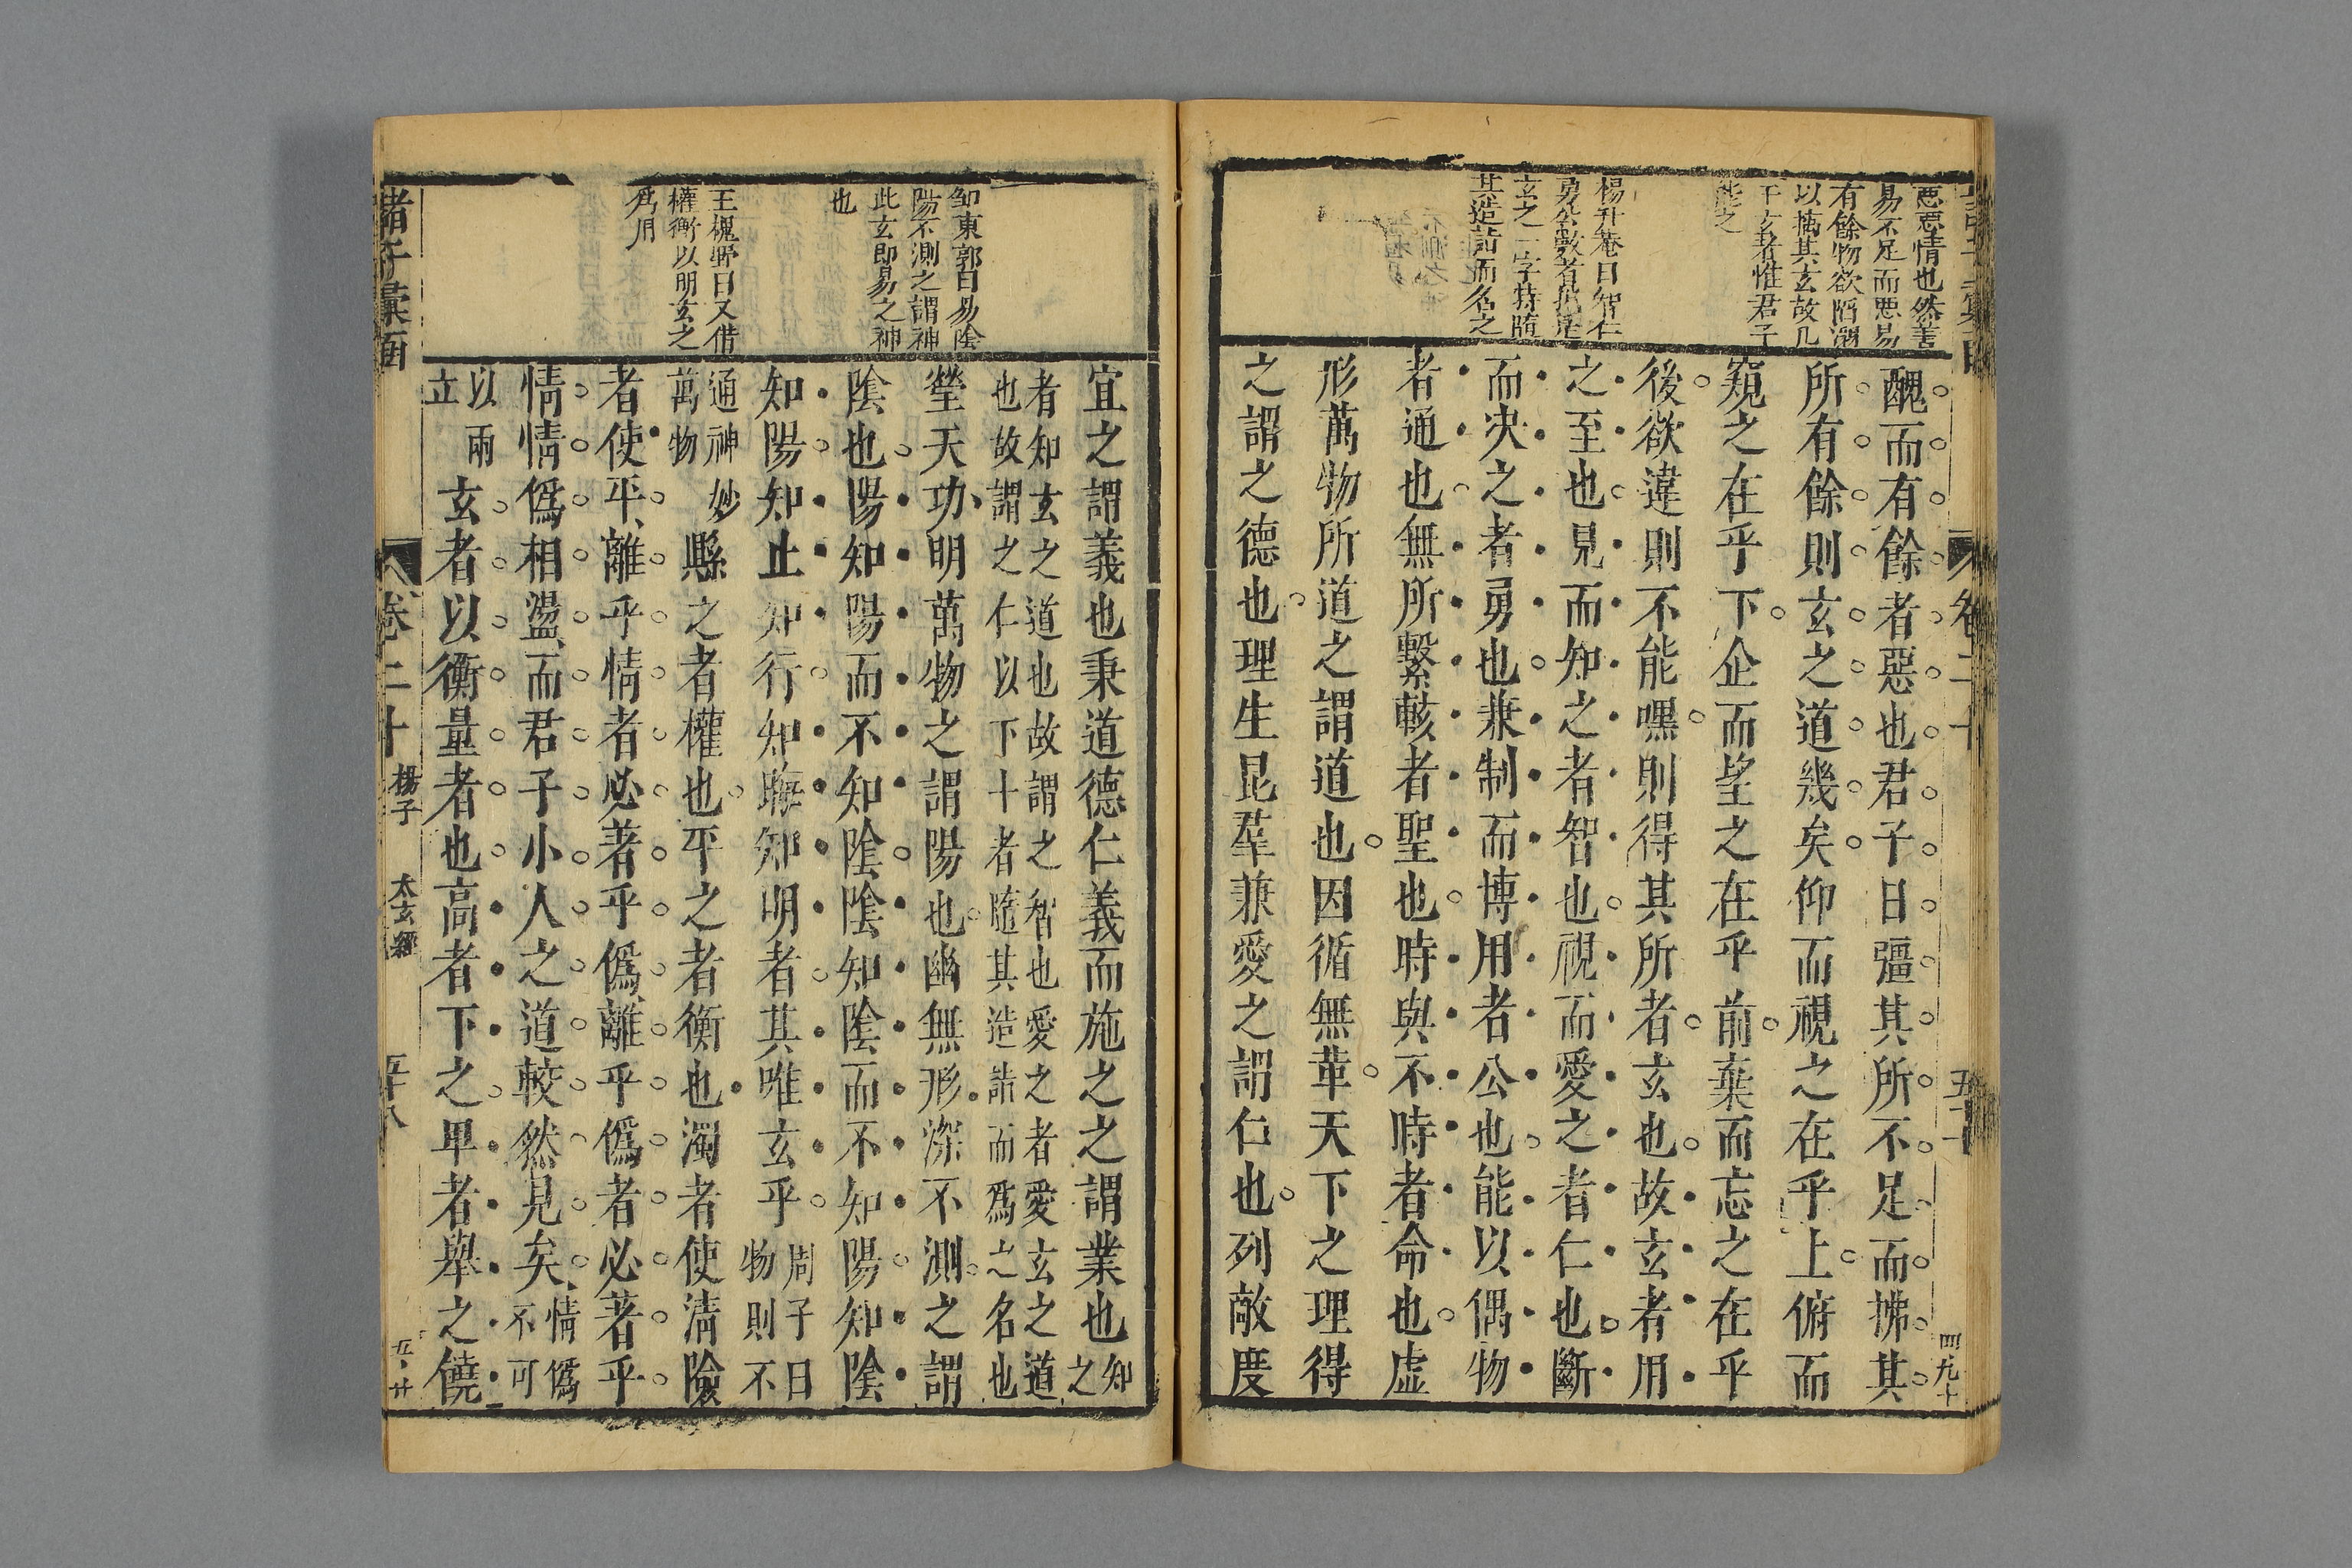 惡惡情也然善
易不足而惡易
有餘物欲陷溺
以擒其玄故凡
干玄者惟君子
能之
楊升菴曰智仁
勇公數者抵是
玄之一字特隨
其造詣而名之
醜而有餘者惡也君子日彊其所不足而拂其
所有餘則玄之道幾矣仰而視之在乎上俯而
窺之在乎下企而望之在乎前棄而忘之在乎
後欲違則不能嘿則得其所者玄也故玄者用
之至也見而知之者智也視而愛之者仁也斷
而决之者勇也兼制而博用者公也能以偶物
者通也無所繫輆者聖也時與不時者命也虛
形萬物所道之謂道也因循無革天下之理得
之謂之德也理生昆羣兼愛之謂仁也列敵度
邹東郭曰易陰
陽不測之謂神
此玄即易之神
也
王槐野曰又借
權衡以明玄之
爲用
宜之謂義也秉道德仁義而施之之謂業也知之
者知玄之道也故謂之智也愛之者愛玄之道
也故謂之仁以下十者隨其造詣而爲之名也
瑩天功明萬物之謂陽也幽無形深不測之謂
陰也陽知陽而不知陰陰知陰而不知陽知陰
知陽知止知行知晦知明者其唯玄乎周子曰物則不
通神妙萬物縣之者權也平之者衡也濁者使淸險
者使平離乎情者必著乎僞離乎僞者必著乎
情情僞相盪而君子小人之道較然見矣情僞不可
以兩立玄者以衡量者也高者下之卑者舉之饒
諸子彙函
卷二十
揚子
太玄經
五十八